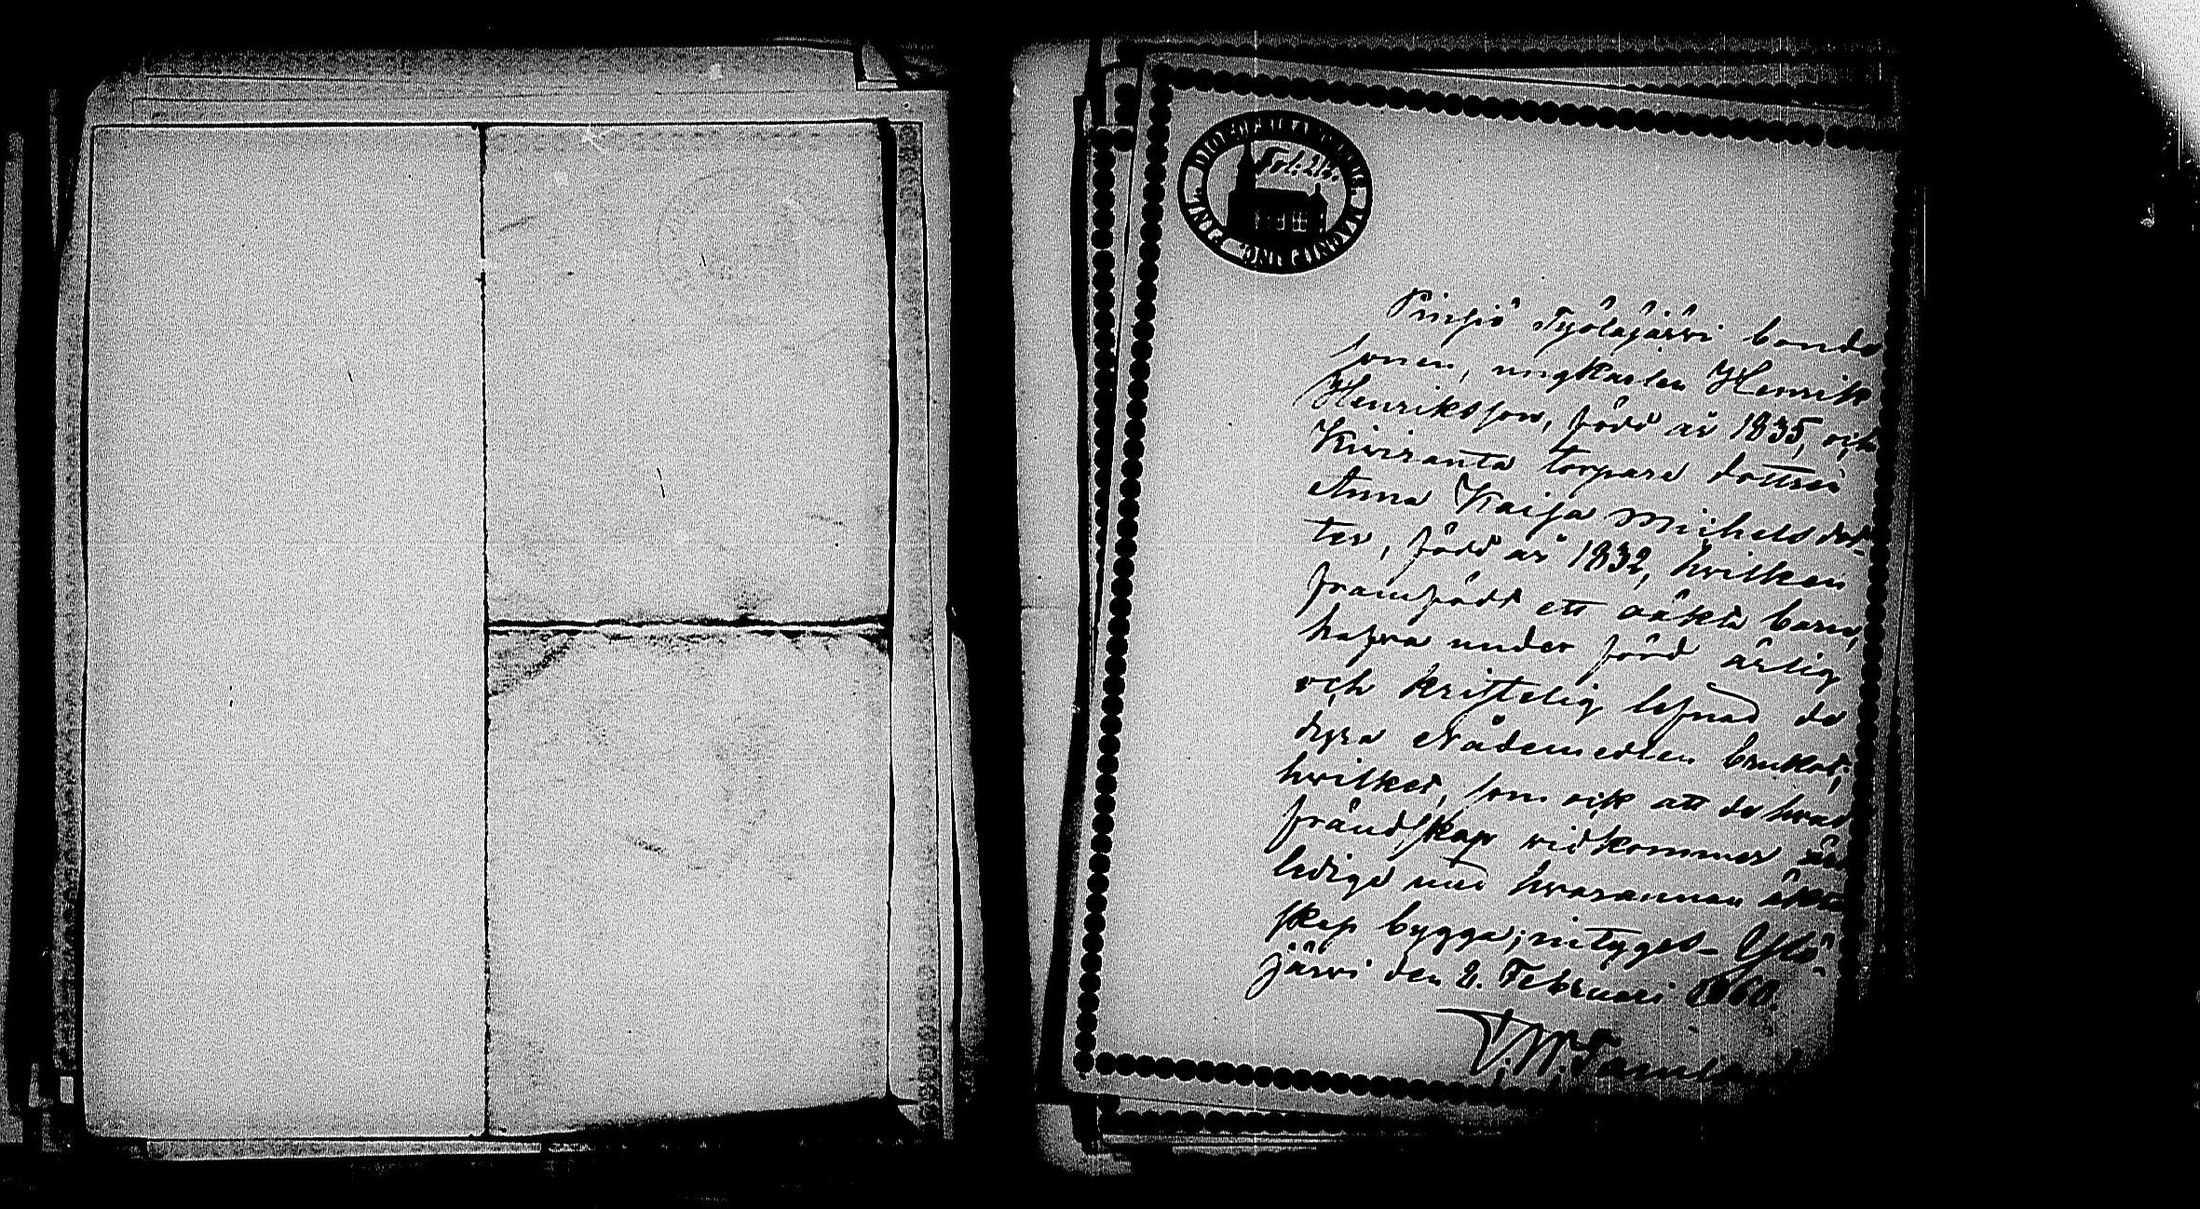 Fol: 212.
Pinsiö Työläjärvi bonde
sonen, ungkarlen Henrik
Henriksson, född år 1835, och
Kiviranta torpare dottren
Anna Kaisa Michelsdot-
ter, född år 1832, hvilken
framfödt ett oäkta barn,
hafva under förd ärlig
och kristelig lefnad de
dyra Nådemedlen brukat;
hvilket, som ock att de hvad
frändskap vidkommer äro
ledige med hvarannan äkta-
skap bygga; intygas. Ylö-
järvi den 2. Februari 1860.